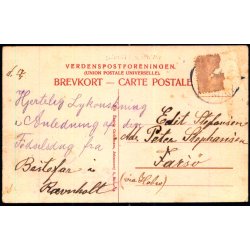 VERDENSPOSTFORENINGEN.
(UNION POSTALE UNIVERSELLE)
BREVKORT — CARTE POSTALE
Hjertelig Lykønskning
i Anledning af din
Fødselsdag fra
Bedstefar i
Ravnholt
Edit Stefansen
Adr. Peter Stephansen
Farsø
(via Hobro)